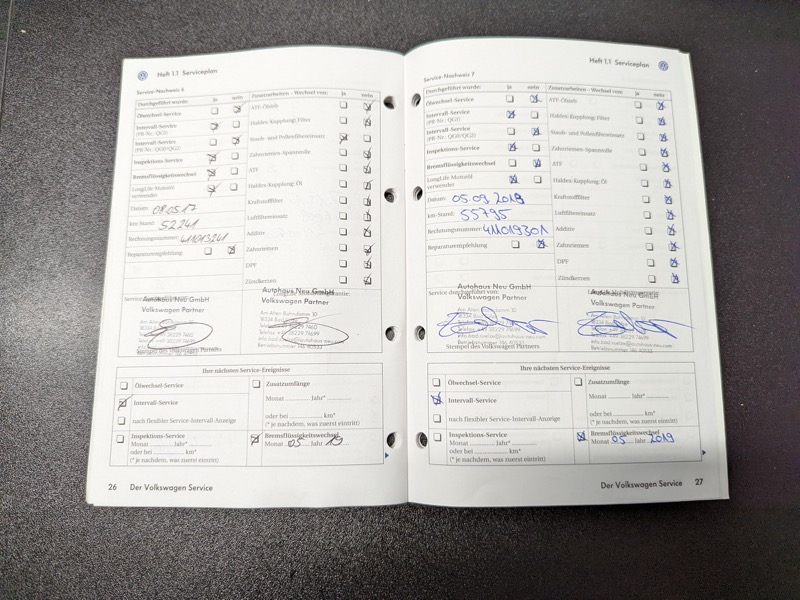 Heft 1.1 Serviceplan
Service-Nachweis 6
Durchgeführt wurde: ja nein
Ölwechsel-Service
Intervall-Service
(PR-Nr.: QG1)
Intervall-Service
(PR-Nr.: QG0/QG2)
Inspektions-Service
Bremsflüssigkeitswechsel
LongLife Motoröl
verwendet
Datum: 08.05.17
km-Stand: 52241
Rechnungsnummer: 411013241
Reparaturempfehlung
Zusatzarbeiten - Wechsel von: ja nein
ATF-Ölsieb
Haldex-Kupplung: Filter
Staub- und Pollenfiltereinsatz
Zahnriemen-Spannrolle
ATF
Haldex-Kupplung: Öl
Kraftstofffilter
Luftfiltereinsatz
Additiv
Zahnriemen
DPF
Zündkerzen
Autohaus Neu GmbH
Volkswagen Partner
Am Alten Bahndamm 10
Stempel des Volkswagen Partners
Autohaus Neu GmbH
Volkswagen Partner
Ihre nächsten Service-Ereignisse
Ölwechsel-Service
Intervall-Service
nach flexibler Service-Intervall-Anzeige
Inspektions-Service
Monat .......... Jahr*..........
oder bei .......... km*
(* je nachdem, was zuerst eintritt)
Zusatzumfänge
Monat .......... Jahr*..........
oder bei .......... km*
(* je nachdem, was zuerst eintritt)
Bremsflüssigkeitswechsel
Monat 05 Jahr 19
26 Der Volkswagen Service
Heft 1.1 Serviceplan
Service-Nachweis 7
Durchgeführt wurde: ja nein
Ölwechsel-Service
Intervall-Service
(PR-Nr.: QG1)
Intervall-Service
(PR-Nr.: QG0/QG2)
Inspektions-Service
Bremsflüssigkeitswechsel
LongLife Motoröl
verwendet
Datum: 05.03.2019
km-Stand: 55795
Rechnungsnummer: 411019301
Reparaturempfehlung
Zusatzarbeiten - Wechsel von: ja nein
ATF-Ölsieb
Haldex-Kupplung: Filter
Staub- und Pollenfiltereinsatz
Zahnriemen-Spannrolle
ATF
Haldex-Kupplung: Öl
Kraftstofffilter
Luftfiltereinsatz
Additiv
Zahnriemen
DPF
Zündkerzen
Service durchgeführt von:
Autohaus Neu GmbH
Volkswagen Partner
Am Alten Bahndamm 10
Stempel des Volkswagen Partners
Autohaus Neu GmbH
Volkswagen Partner
Am Alten Bahndamm 10
Ihre nächsten Service-Ereignisse
Ölwechsel-Service
Intervall-Service
nach flexibler Service-Intervall-Anzeige
Inspektions-Service
Monat .......... Jahr*..........
oder bei .......... km*
(* je nachdem, was zuerst eintritt)
Zusatzumfänge
Monat .......... Jahr*..........
oder bei .......... km*
(* je nachdem, was zuerst eintritt)
Bremsflüssigkeitswechsel
Monat 05 Jahr 2019
Der Volkswagen Service 27